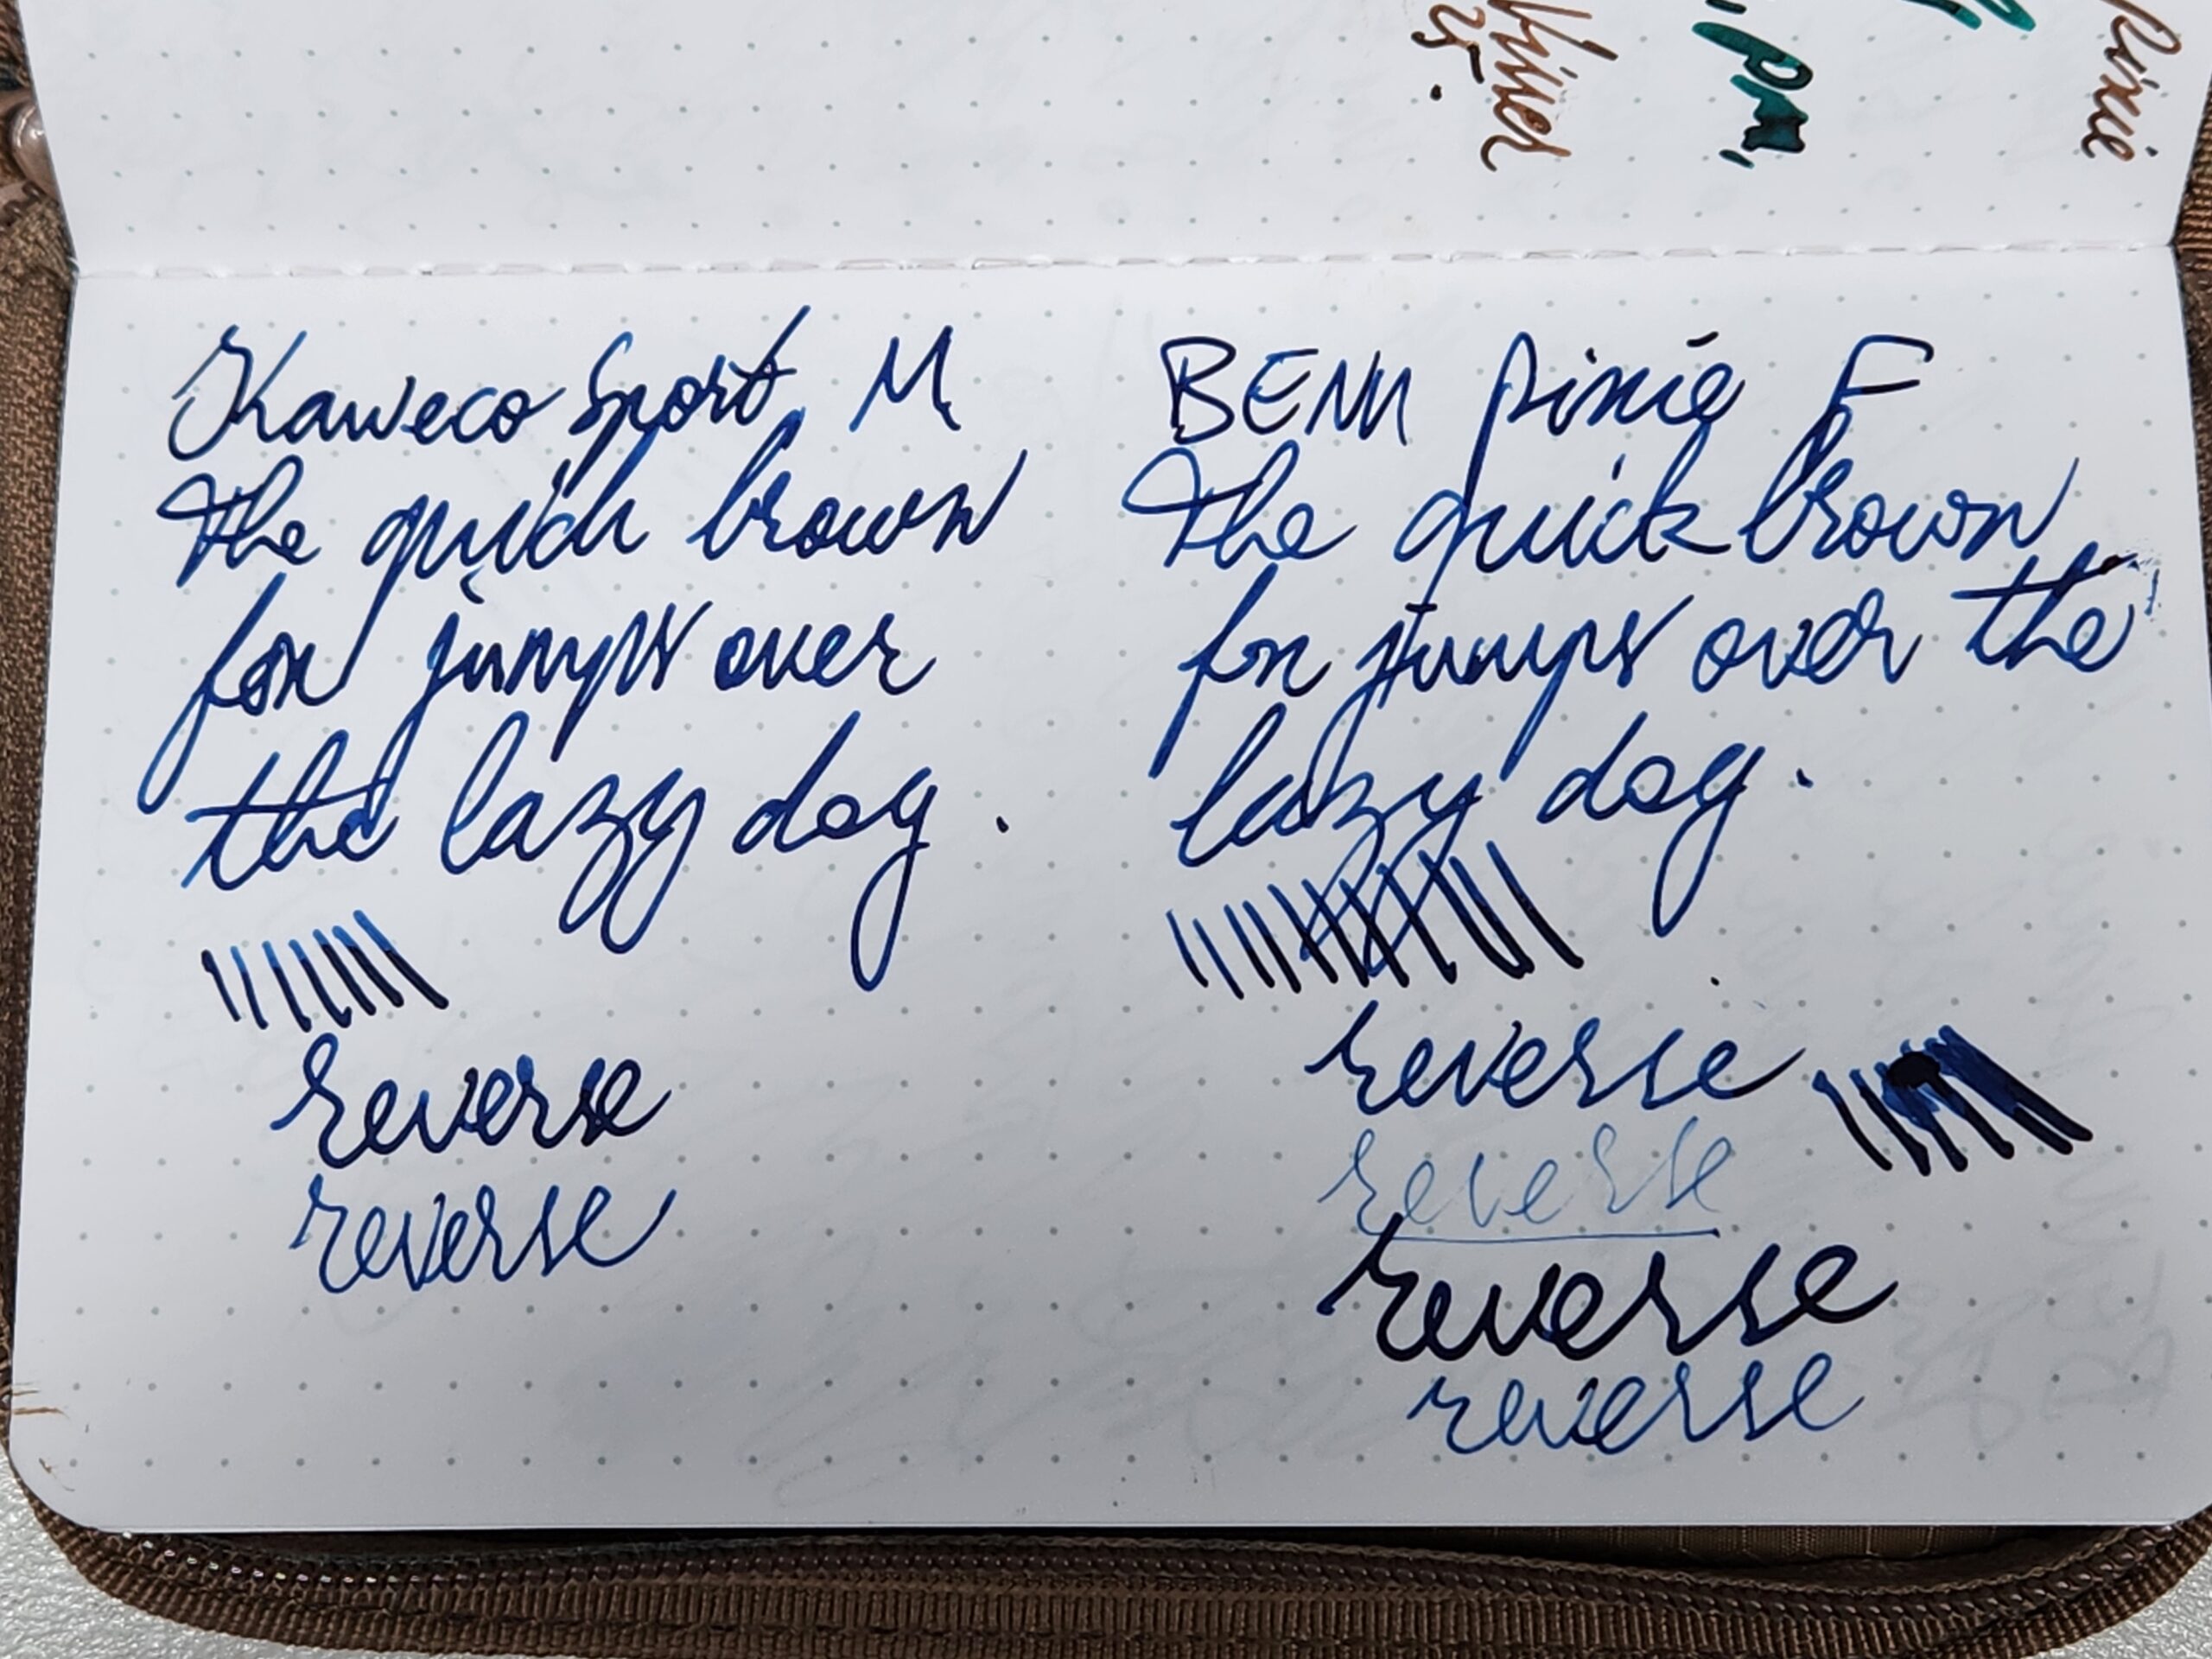 pixie
pm,
25.
Kaweco Sport, M
The quick brown
fox jumps over
the lazy dog.
reverse
reverse
BENU pixie F
The quick brown
fox jumps over the
lazy dog.
reverse
reverse
reverse
reverse